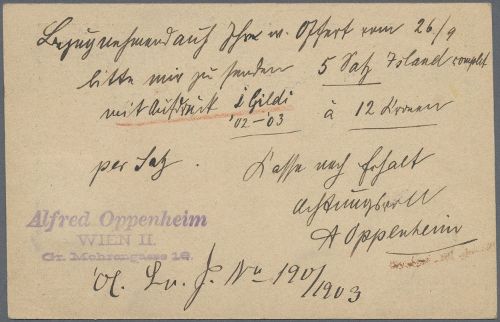 Bezugnehmend auf Ihre w. Offert vom 26/9
bitte mir zu senden 5 Satz Island complet
mit Aufdruck i Gildi '02-'03 à 12 Kronen
per Satz. Kassa nach Erhalt
Achtungsvoll
A Oppenheim
Alfred Oppenheim
WIEN II.
Gr. Mohrengasse 16.
190/1903